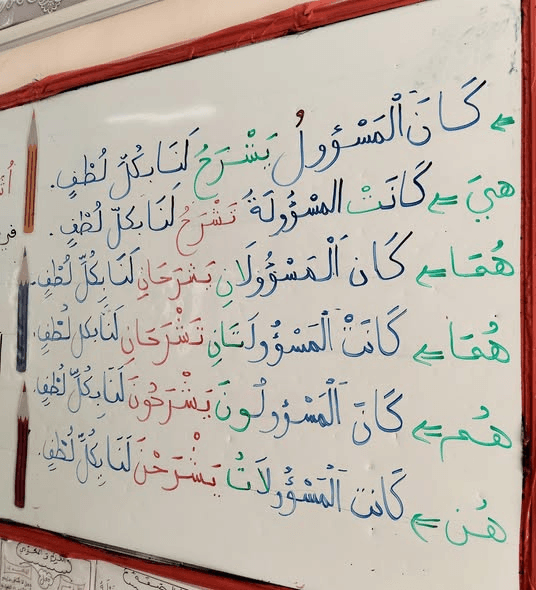 ⇐ كَانَ الْمَسْؤُولُ يَشْرَحُ لَنَا بِكُلِّ لُطْفٍ.
هِيَ ⇐ كَانَتْ المَسْؤُولَةُ تَشْرَحُ لَنَا بِكلِّ لُطْفٍ.
هُمَا ⇐ كَانَ الْمَسْؤُولَانِ يَشْرَحَانِ لَنَا بِكُلِّ لُطْفٍ.
هُمَا ⇐ كَانَتْ الْمَسْؤُولَتَانِ تَشْرَحَانِ لَنَا بِكلِّ لُطْفٍ.
هُم ⇐ كَانَ الْمَسْؤُولُونَ يَشْرَحُونَ لَنَا بِكُلِّ لُطْفٍ.
هُنَّ ⇐ كَانَت الْمَسْؤُولَاتُ يَشْرَحْنَ لَنَا بِكُلِّ لُطْفٍ.
في